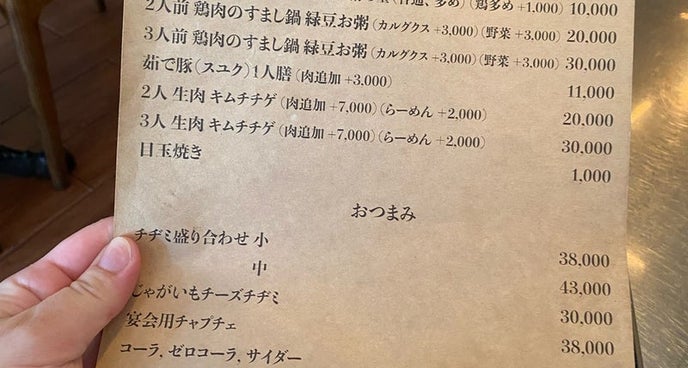 (普通、多め)(鶏多め +1,000) 10,000
2人前 鶏肉のすまし鍋 緑豆お粥 (カルグクス +3,000)(野菜 +3,000) 20,000
3人前 鶏肉のすまし鍋 緑豆お粥 (カルグクス +3,000)(野菜 +3,000) 30,000
茹で豚 (スユク) 1人膳 (肉追加 +3,000) 11,000
2人 生肉 キムチチゲ (肉追加 +7,000)(らーめん +2,000) 20,000
3人 生肉 キムチチゲ (肉追加 +7,000)(らーめん +2,000) 30,000
目玉焼き 1,000
おつまみ
チヂミ盛り合わせ 小 38,000
中 43,000
じゃがいもチーズチヂミ 30,000
宴会用チャプチェ 38,000
コーラ, ゼロコーラ, サイダー